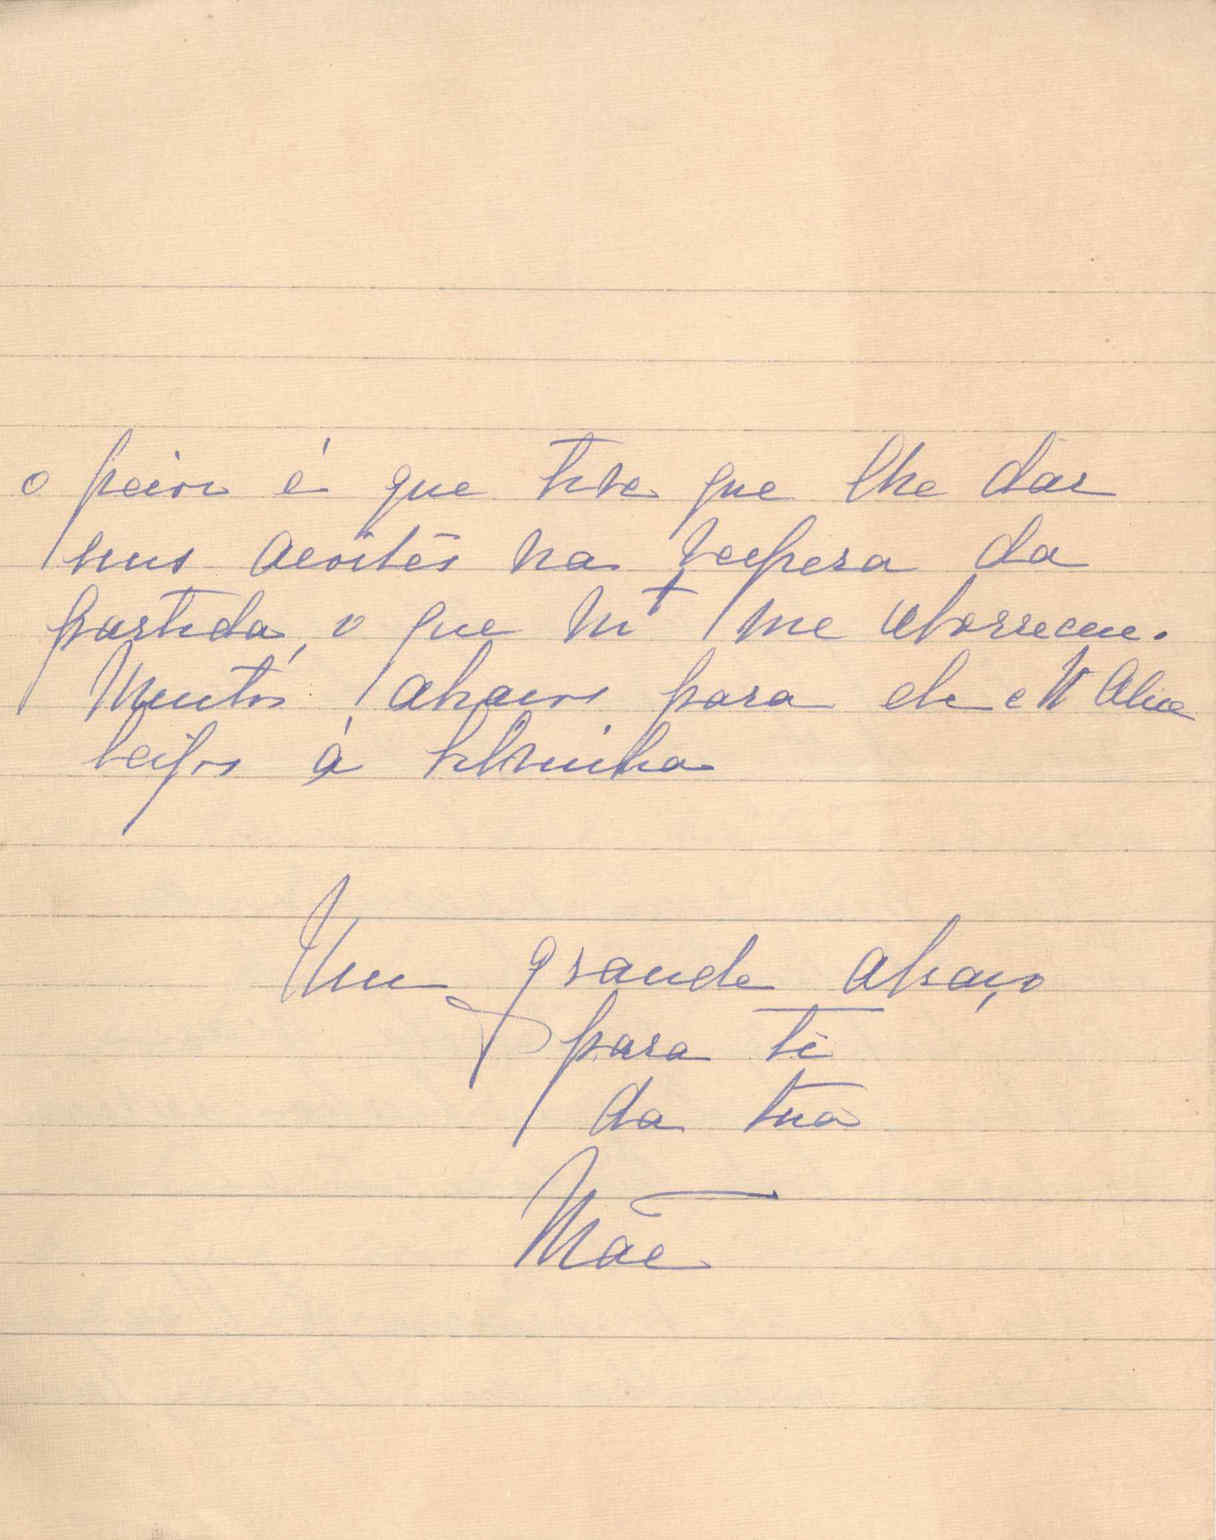 o peior é que tive que lhe dar
uns açoites na vespera da
partida, o que mto me aborreceu.
Muitos abraços para ele e Mª Alice
beijos á
Um grande abraço
para ti
da tua
Mãe